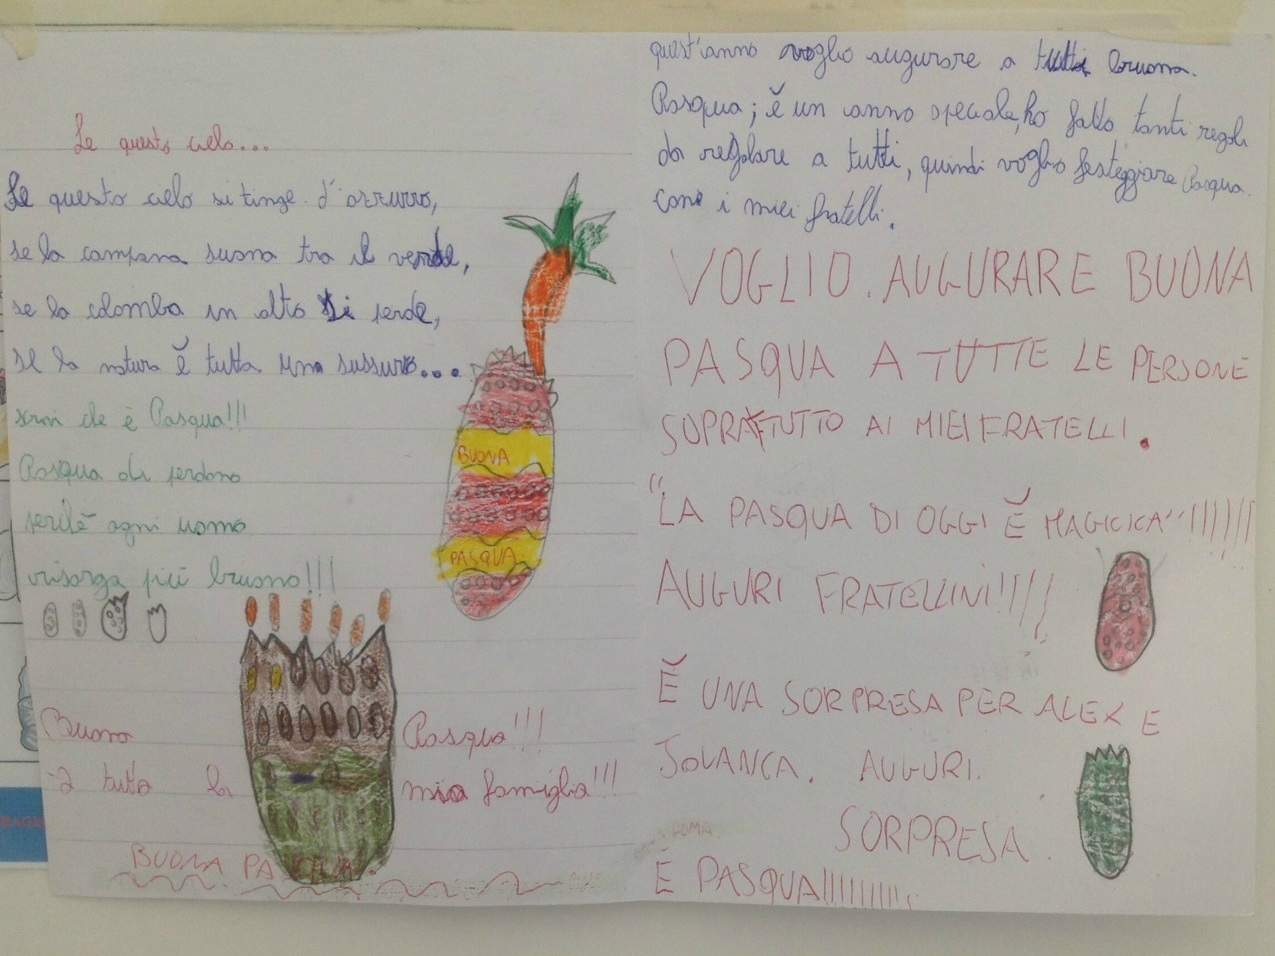 Se questo cielo...
Se questo cielo si tinge d'azzurro,
se la campana suona tra il verde,
se la colomba in alto si perde,
se la natura è tutta un sussurro...
Pasqua!!!
Pasqua di perdono
ogni uomo
risorga più buono!!!
BUONA
PASQUA
Buona Pasqua!!!
a tutta la mia famiglia!!!
BUONA PASQUA
quest'anno voglio augurare a tutti buona
Pasqua; è un anno speciale, ho fatto tanti regali
da regalare a tutti, quindi voglio festeggiare Pasqua
con i miei fratelli.
VOGLIO. AUGURARE BUONA
PASQUA A TUTTE LE PERSONE
SOPRATTUTTO AI MIEI FRATELLI.
"LA PASQUA DI OGGI È MAGICICA"!!!!!!
AUGURI FRATELLINI!!!!!
È UNA SORPRESA PER ALEX E
JOLANCA. AUGURI.
SORPRESA.
È PASQUA!!!!!!!!!!